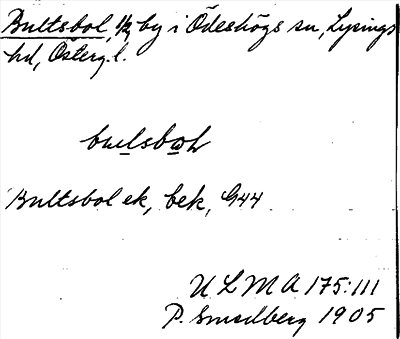 Bultsbol, 1/2, by i Ödeshögs sn, Lysings
hd, Österg. l.
bulsbωl
Bultsbol ek, bek, G44
ULMA 175:111
P. Smedberg 1905